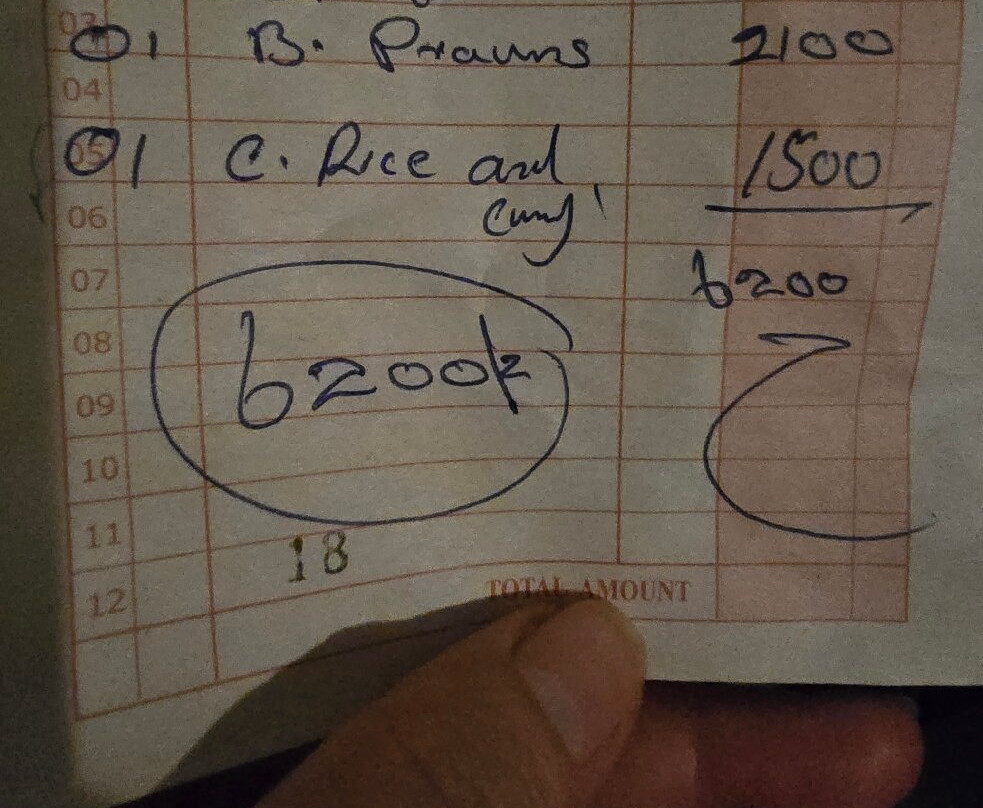 03 01 B. Prawns 2100
04
05 01 C. Rice and 1500
06 curry
07 6200
08
6200k
09
10
11
18
12 TOTAL AMOUNT